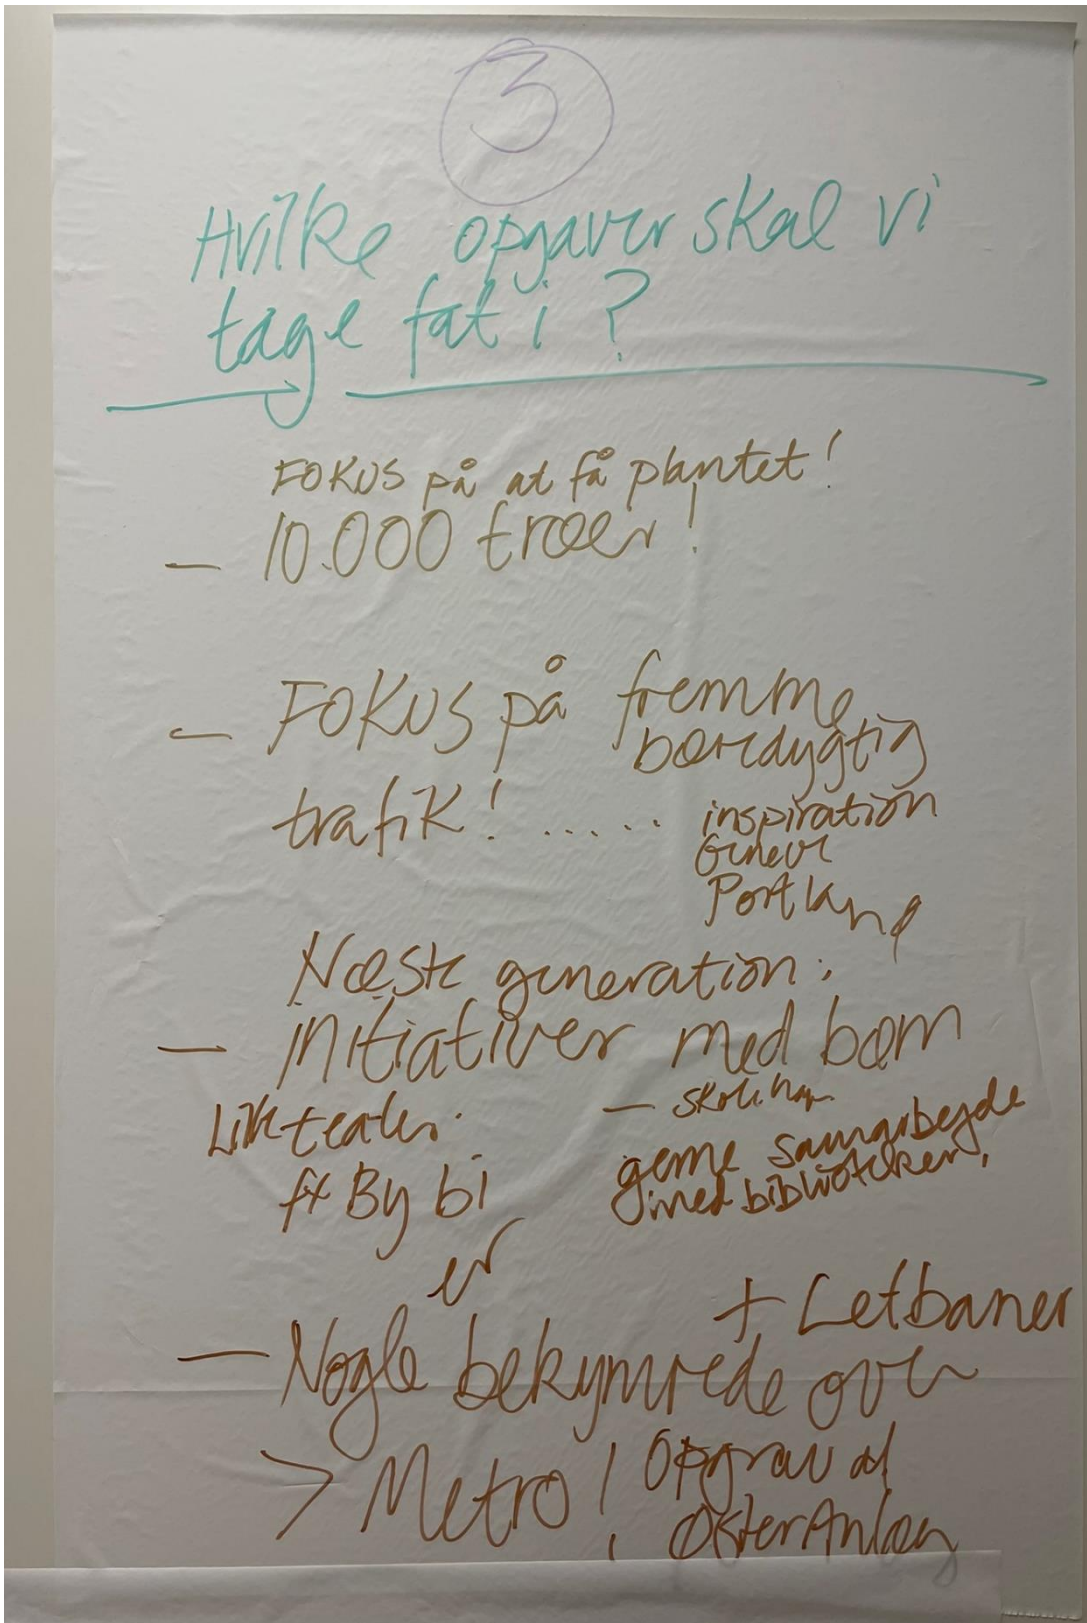 3
Hvilke opgaver skal vi
tage fat i ?
FOKUS på at få plantet!
– 10.000 træer!
– FOKUS på fremme
bæredygtig
trafik! ..... inspiration
Portland
Næste generation:
– initiativer med børn
– skolehave
gerne samarbejde
med biblioteker,
fx By bi
er
+ Letbaner
– Nogle bekymrede over
> Metro! Opgrav af
ØsterAnlæg